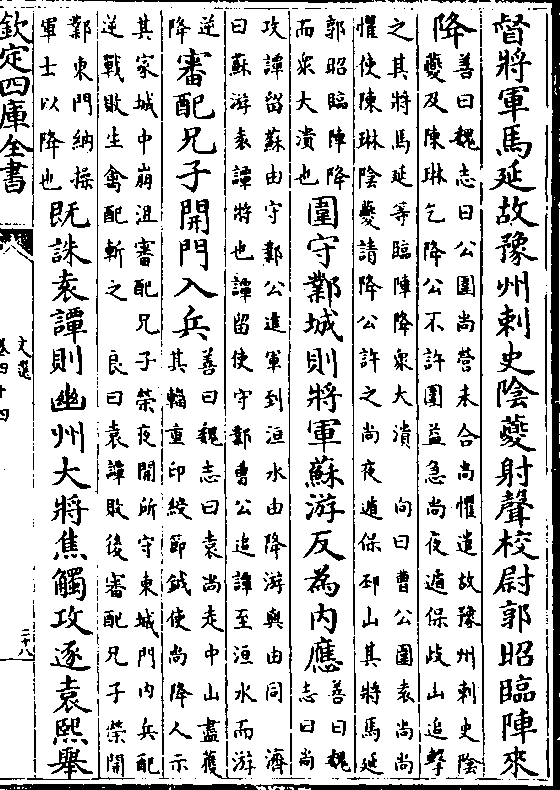 督將軍馬延故豫州刺史陰夔射聲校尉郭昭臨陣來
降
善曰魏志曰公圍尚營未合尚懼遣故豫州刺史陰
夔及陳琳乞降公不許圍益急尚夜遁保歧山追擊
之其將馬延等臨陣降衆大潰 向曰曹公圍袁尚尚
懼使陳琳陰夔請降公許之尚夜遁保邳山其將馬延
郭昭臨陣降
而衆大潰也
圍守鄴城則將軍蘇游反為内應
善曰魏
志曰尚
攻譚留蘇由守鄴公進軍到洹水由降游與由同 濟
曰蘇游袁譚將也譚留使守鄴曹公追譚至洹水而游
逆
降
審配兄子開門入兵
善曰魏志曰袁尚走中山盡獲
其輜重印綬節鉞使尚降人示
其家城中崩沮審配兄子榮夜開所守東城門内兵配
逆戰敗生禽配斬之 良曰袁譚敗後審配兄子榮開
鄴東門納操
軍士以降也
既誅袁譚則幽州大將焦觸攻逐袁熙舉
欽定四庫全書
文選
卷四十四
二十八